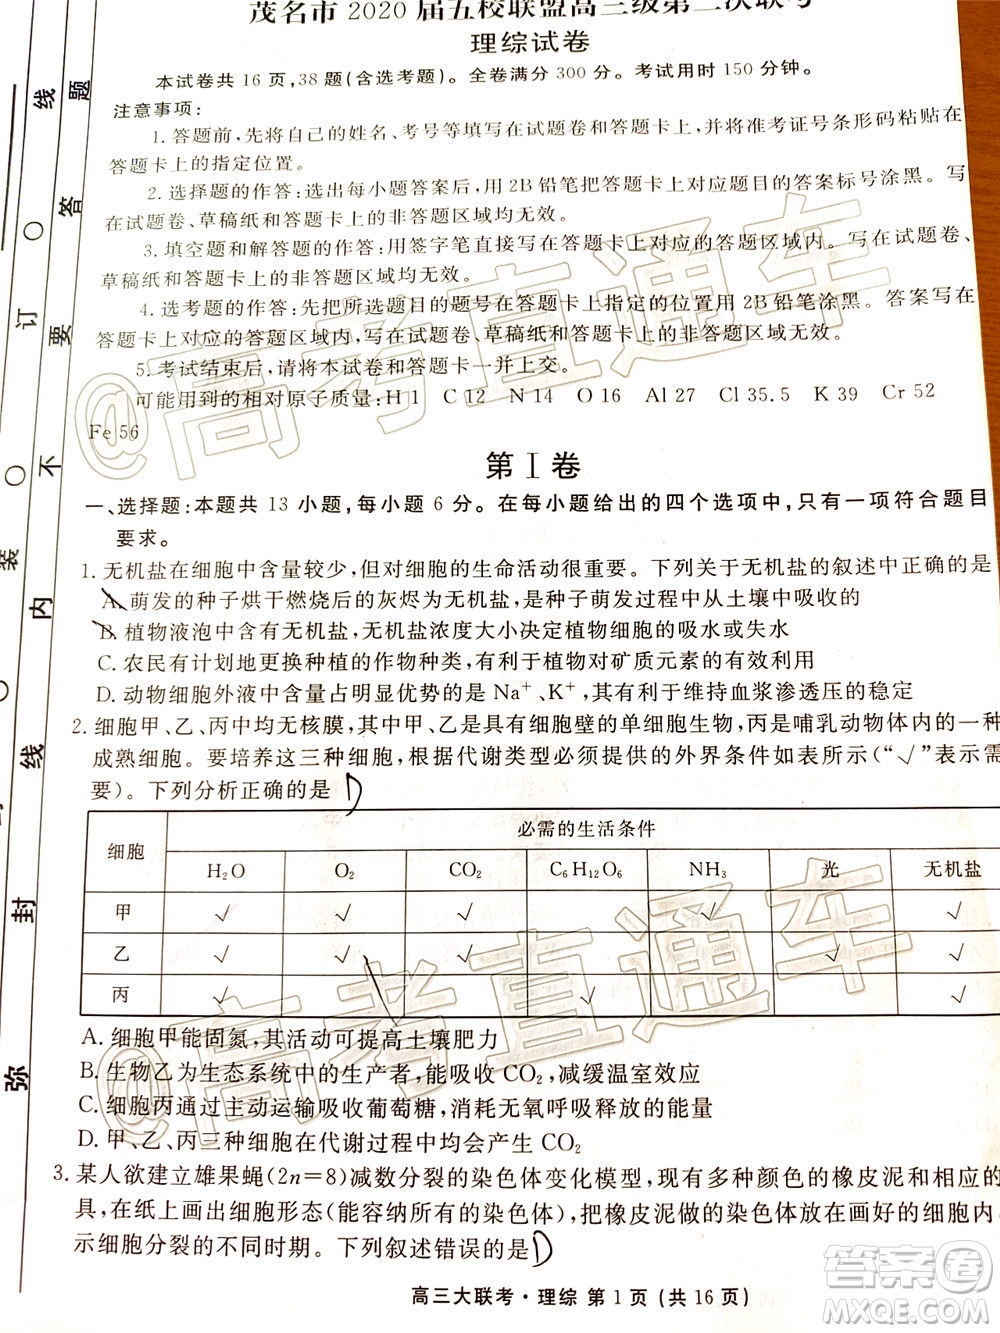 茂名市 2020 届五校联盟高三级第二次联考
理综试卷
本试卷共 16 页,38 题(含选考题)。全卷满分 300 分。考试用时 150 分钟。
注意事项:
1. 答题前,先将自己的姓名、考号等填写在试题卷和答题卡上,并将准考证号条形码粘贴在
答题卡上的指定位置。
2. 选择题的作答:选出每小题答案后,用 2B 铅笔把答题卡上对应题目的答案标号涂黑。写
在试题卷、草稿纸和答题卡上的非答题区域均无效。
3. 填空题和解答题的作答:用签字笔直接写在答题卡上对应的答题区域内。写在试题卷、
草稿纸和答题卡上的非答题区域均无效。
4. 选考题的作答:先把所选题目的题号在答题卡上指定的位置用 2B 铅笔涂黑。答案写在
答题卡上对应的答题区域内,写在试题卷、草稿纸和答题卡上的非答题区域均无效。
5. 考试结束后,请将本试卷和答题卡一并上交。
可能用到的相对原子质量:H 1 C 12 N 14 O 16 Al 27 Cl 35.5 K 39 Cr 52
Fe 56
第 Ⅰ 卷
一、选择题:本题共 13 小题,每小题 6 分。在每小题给出的四个选项中,只有一项符合题目
要求。
1. 无机盐在细胞中含量较少,但对细胞的生命活动很重要。下列关于无机盐的叙述中正确的是
A. 萌发的种子烘干燃烧后的灰烬为无机盐,是种子萌发过程中从土壤中吸收的
B. 植物液泡中含有无机盐,无机盐浓度大小决定植物细胞的吸水或失水
C. 农民有计划地更换种植的作物种类,有利于植物对矿质元素的充分吸收
D. 动物细胞外液中含量占明显优势的是 Na⁺、K⁺,其有利于维持血浆渗透压的稳定
2. 细胞甲、乙、丙中均无核膜,其中甲、乙是具有细胞壁的单细胞生物,丙是哺乳动物体内的一种
成熟细胞。要培养这三种细胞,根据代谢类型必须提供的外界条件如表所示(“√”表示需
要)。下列分析正确的是 D
细胞 必需的生活条件
H₂O O₂ CO₂ C₆H₁₂O₆ NH₃ 光 无机盐
甲 √ √ √ √ √
乙 √ √ √ √ √
丙 √ √ √
A. 细胞甲能固氮,其活动可提高土壤肥力
B. 生物乙为生态系统中的生产者,能吸收 CO₂,减缓温室效应
C. 细胞丙通过主动运输吸收葡萄糖,消耗无氧呼吸释放的能量
D. 甲、乙、丙三种细胞在代谢过程中均会产生 CO₂
3. 某人欲建立雄果蝇(2n=8)减数分裂的染色体变化模型,现有多种颜色的橡皮泥和相应的
具,在纸上画出细胞形态(能容纳所有的染色体),把橡皮泥做的染色体放在画好的细胞内
示细胞分裂的不同时期。下列叙述错误的是 D
高三大联考·理综 第 1 页 (共 16 页)
弥 封 线 内 不 要 答 题
装 订 线
@高考直通车
@高考直通车
答案圈
MXQE.COM